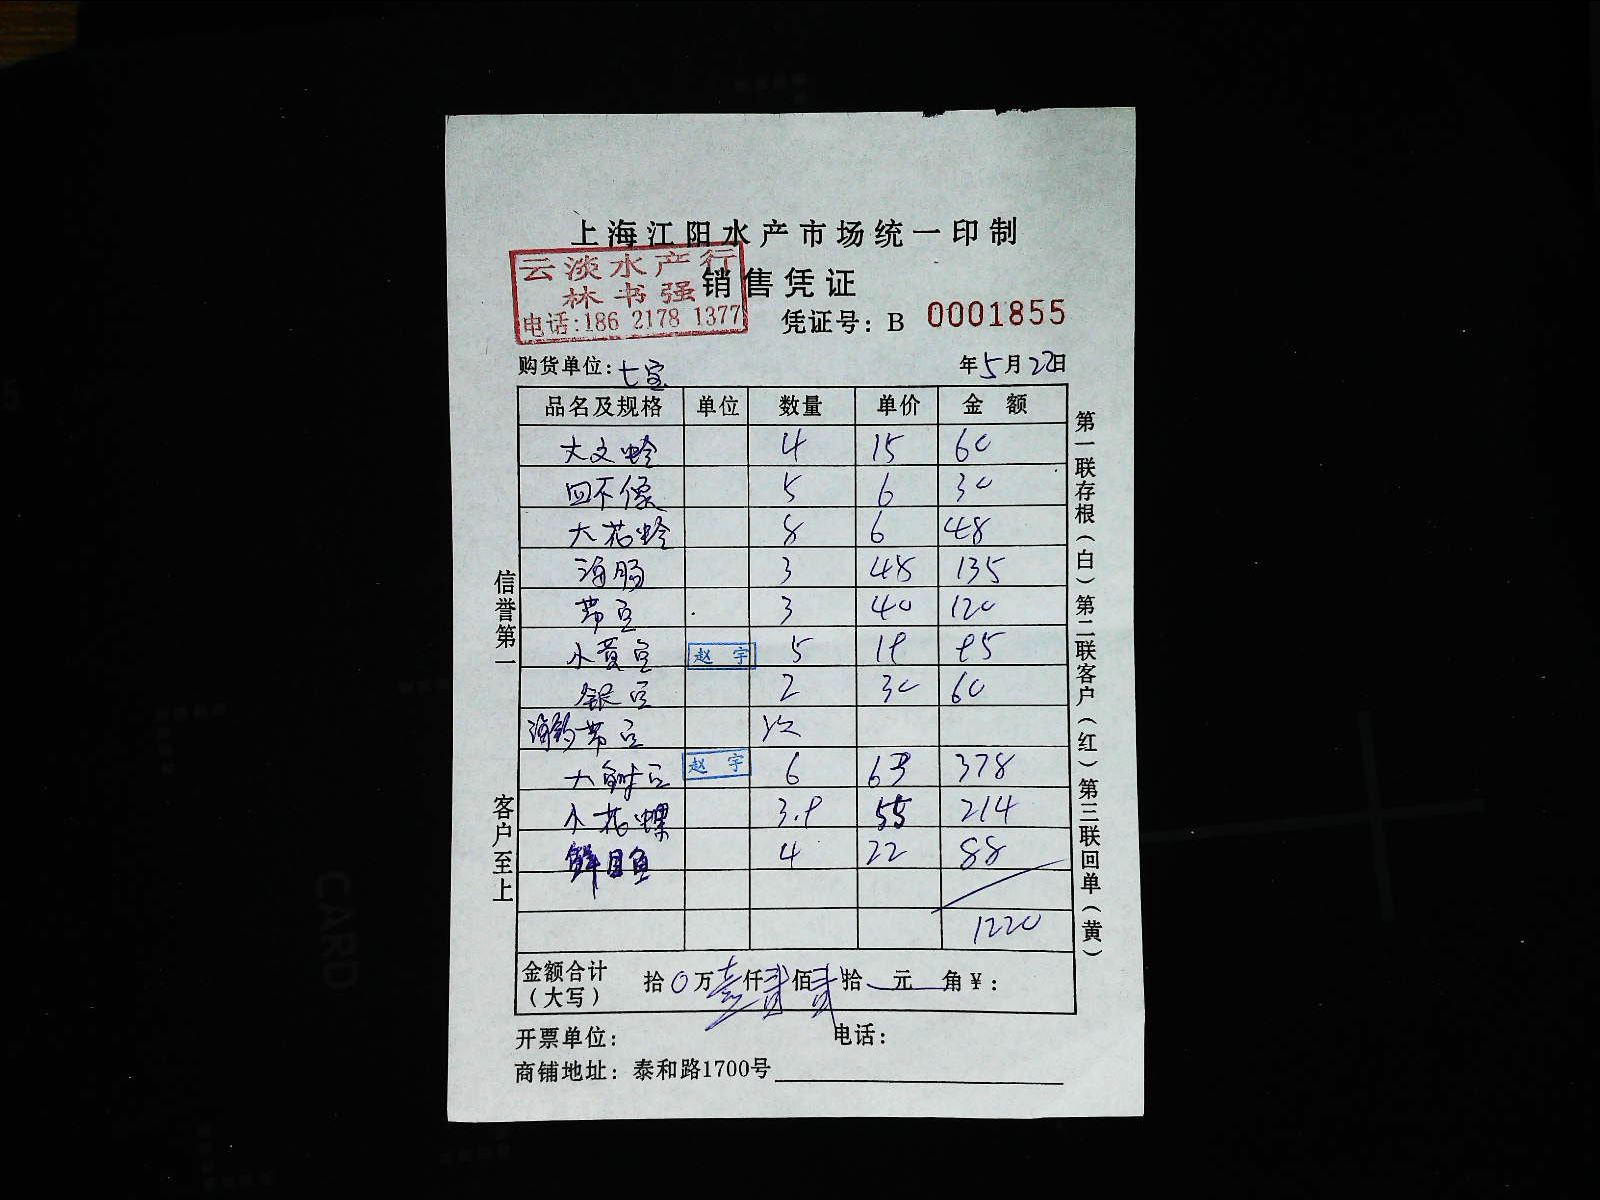 上海江阳水产市场统一印制
销售凭证
云淡水产行
林书强
电话:186 2178 1377
凭证号：B 0001855
购货单位:七宝 年5月22日
品名及规格 单位 数量 单价 金额
大文蛤 4 15 60
四不像 5 6 30
大花蛤 8 6 48
海肠 3 45 135
带豆 3 40 120
小黄豆 赵宇 5 19 95
银豆 2 30 60
带豆 次
大 豆 赵宇 6 63 378
小花螺 3.9 55 214
鲜 4 22 88
1220
金额合计（大写） 拾0万壹仟贰佰贰拾 元 角¥：
开票单位： 电话：
商铺地址：泰和路1700号
信誉第一
客户至上
第一联存根（白）第二联客户（红）第三联回单（黄）
CARD